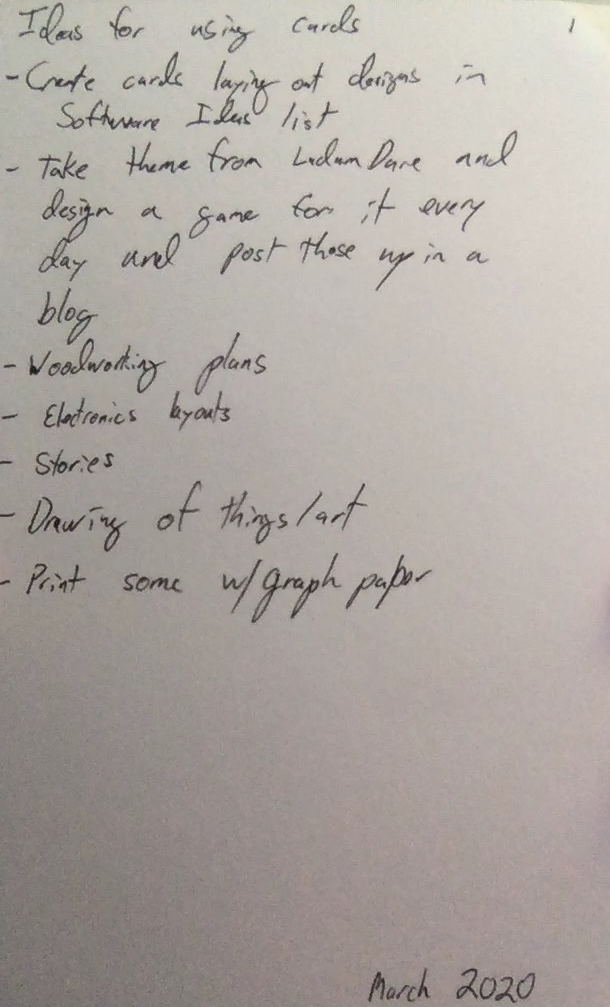 Ideas for using cards 1
- Create cards laying out designs in
Software Ideas list
- Take theme from Ludum Dare and
design a game for it every
day and post those up in a
blog
- Woodworking plans
- Electronics layouts
- Stories
- Drawing of things/art
- Print some w/ graph paper
March 2020